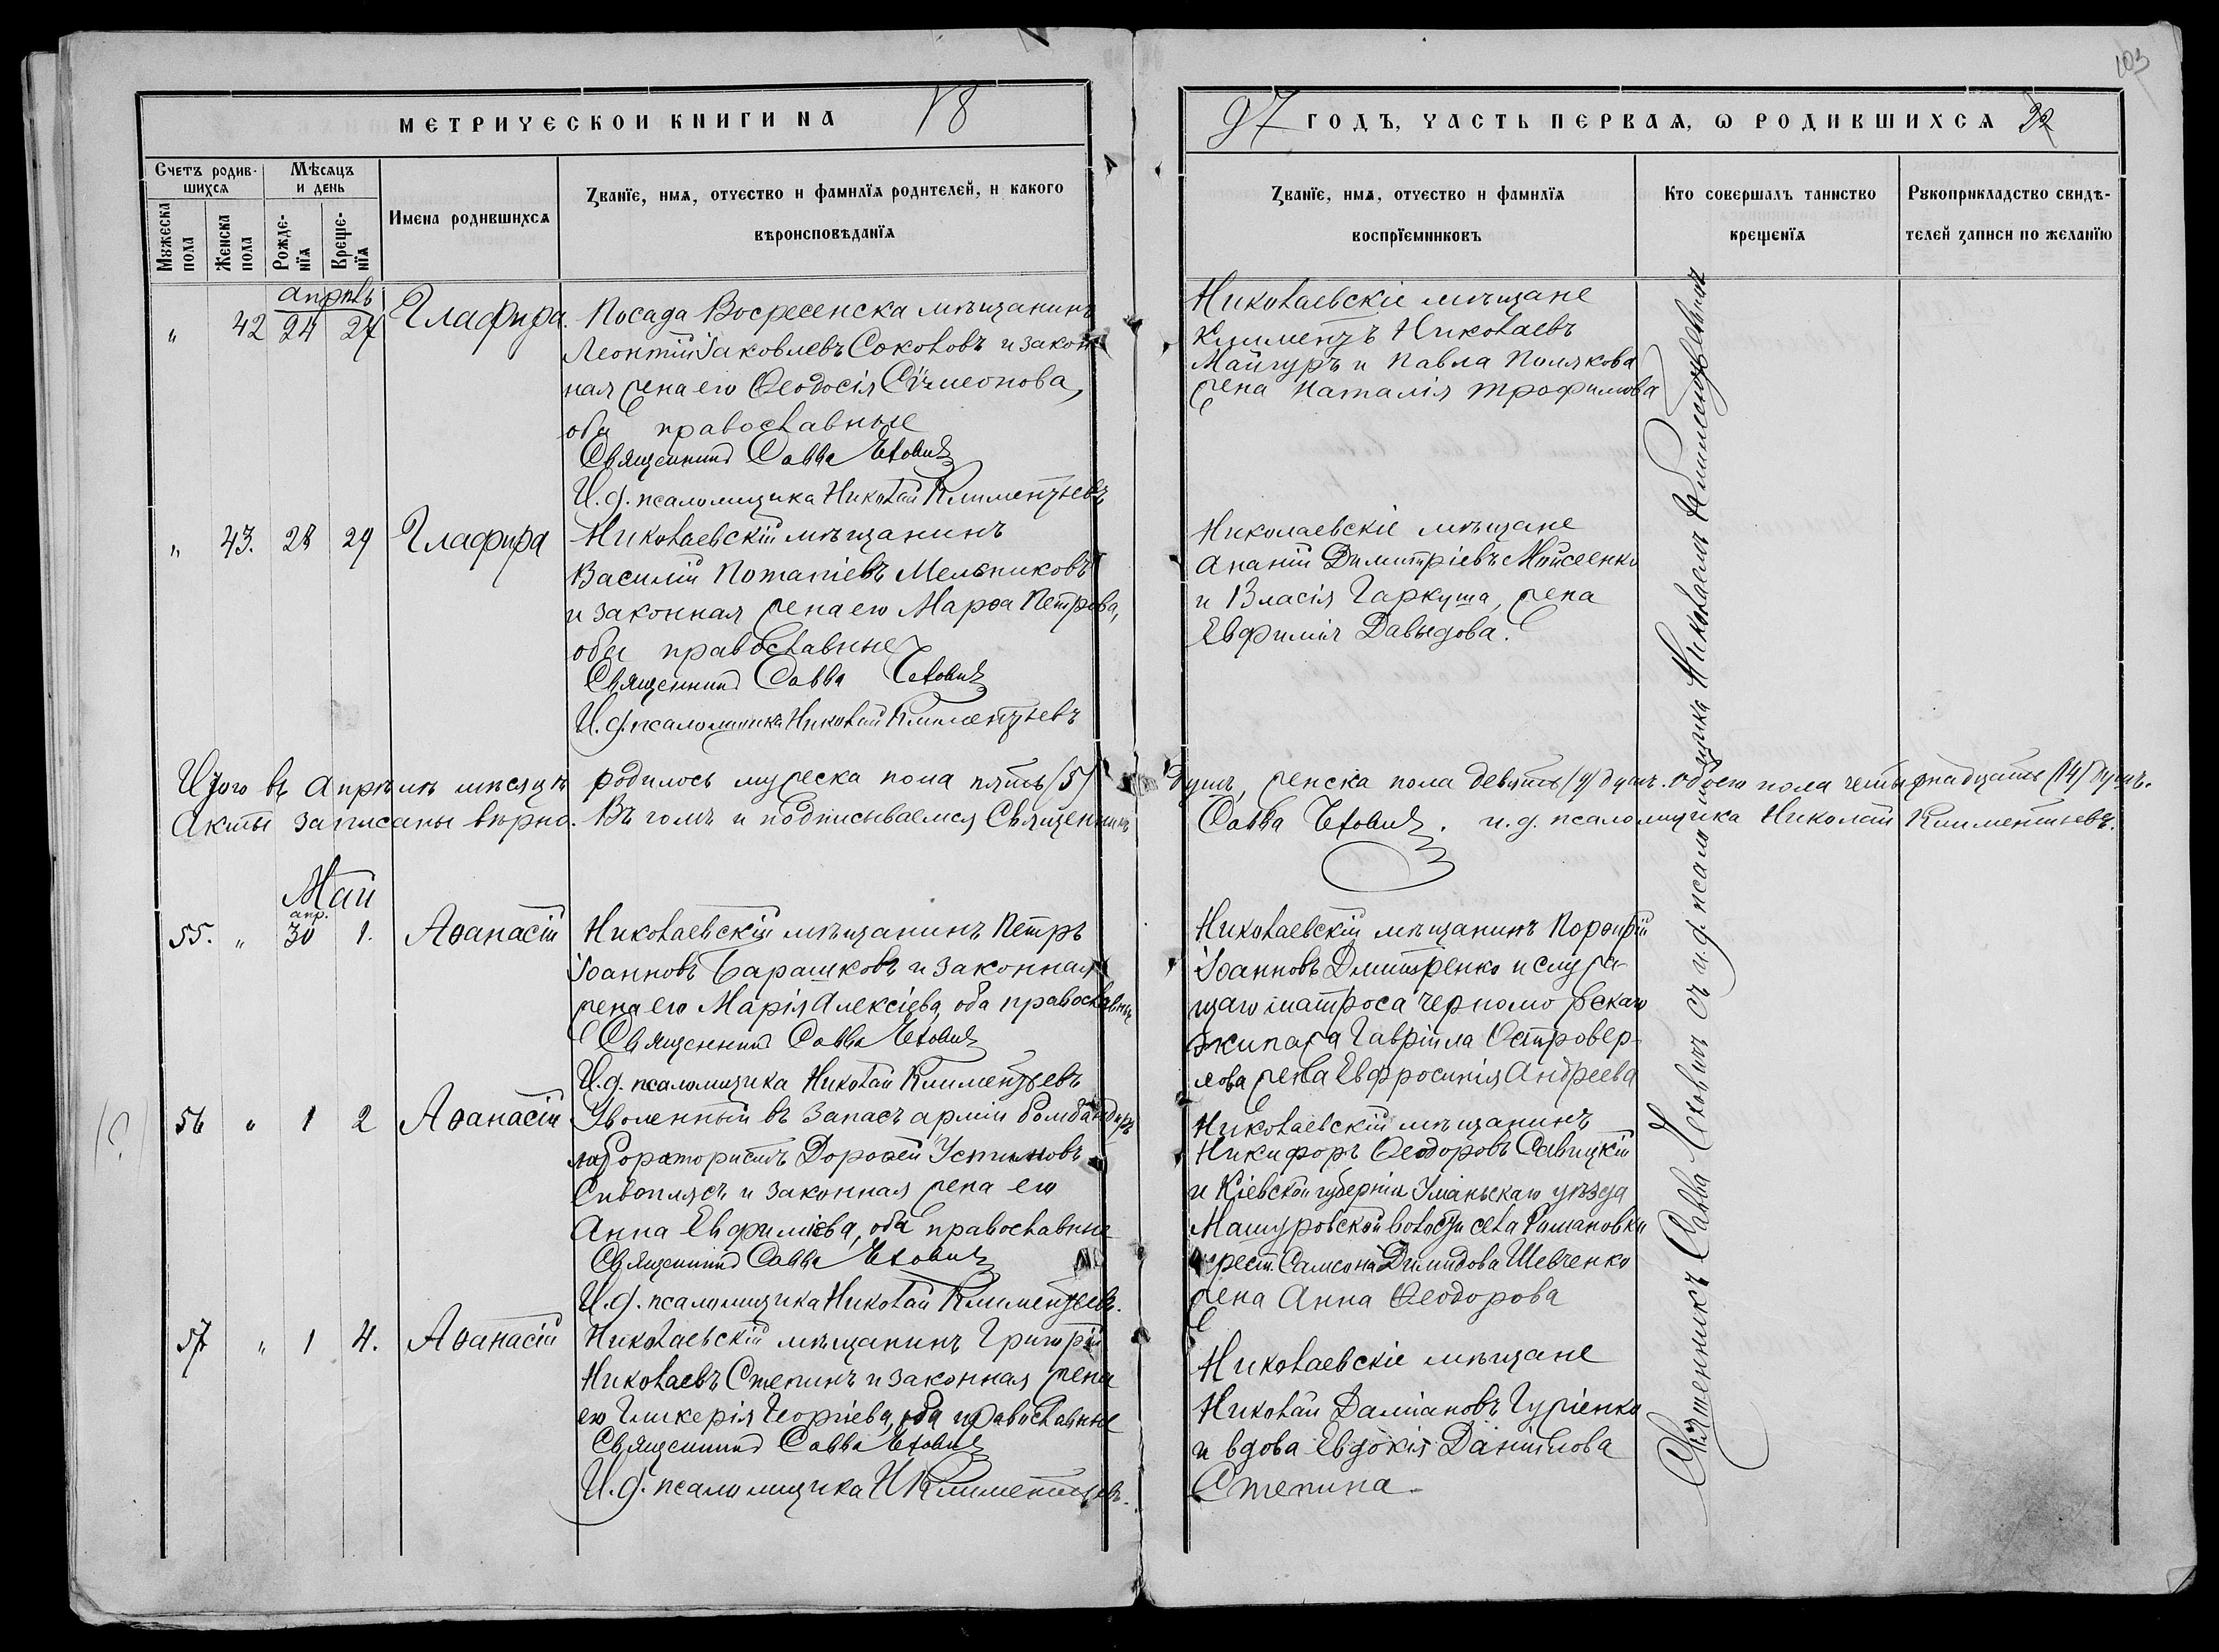 103
МЕТРИЧЕСКОЙ КНИГИ НА 18
97 ГОДЪ, ЧАСТЬ ПЕРВАЯ, Ѡ РОДИВШИХСЯ 32
Счетъ родив-
шихся
Мѣсяцъ
и день
Мужеска
пола
Женска
пола
Рожде-
нїя
Креще-
нїя
Имена родившихся
Званїе, имя, отчество и фамилїя родителей, и какого
вѣроисповѣданїя
Званїе, имя, отчество и фамилїя
воспрїемниковъ
Кто совершалъ таинство
крещенїя
Рукоприкладство свидѣ-
телей записи по желанїю
апрѣль
" 42 24 27 Глафира.
Посада Воскресенска мѣщанинъ
Леонтій Іаковлевъ Соколовъ и закон-
ная жена его Ѳеодосія Сѵмеонова,
оба православные
Священникъ Савва Чеховичъ
И. д. псаломщика Николай Климентьевъ
Николаевскіе мѣщане
Климентъ Николаевъ
Майгуръ и Павла Полякова
жена Наталія Трофимова
" 43. 28 29 Глафира
Николаевскій мѣщанинъ
Василій Потапіевъ Мельниковъ
и законная жена его Марѳа Петрова,
оба православные
Священникъ Савва Чеховичъ
И. д. псаломщика Николай Климентьевъ
Николаевскіе мѣщане
Ананій Димитріевъ Мойсеенко
и Власія Гаркуша, жена
Евфимія Давыдова.
Итого въ апрѣлѣ мѣсяцѣ родилось мужеска пола пять (5) душъ, женска пола девять (9) душъ. Обоего пола четырнадцать (14) душъ.
Акты записаны вѣрно. Въ томъ и подписываемся Священникъ Савва Чеховичъ. и. д. псаломщика Николай Климентьевъ.
Май
апр.
55. " 30 1. Аѳанасій
Николаевскій мѣщанинъ Петръ
Іоанновъ Барашковъ и законная
жена его Марія Алексіева, оба православные
Священникъ Савва Чеховичъ
И. д. псаломщика Николай Климентьевъ
Николаевскій мѣщанинъ Порфирій
Іоанновъ Дмитренко и служа-
щаго матроса черноморскаго
экипажа Гавріила Островер-
хова жена Евфросинія Андреева
56 " 1 2 Аѳанасій
Уволенный въ запасъ арміи бомбандиръ
лаборатористъ Дороѳей Устиновъ
Сивоплясъ и законная жена его
Анна Евфиміева, оба православные
Священникъ Савва Чеховичъ
И. д. псаломщика Николай Климентьевъ.
Николаевскій мѣщанинъ
Никифоръ Ѳеодоровъ Савицкій
и Кіевской губерніи Уманьскаго уѣзда
Машуровской волости села Романовки
крест. Самсона Димидова Шевченко
жена Анна Ѳеодорова
57 " 1 4. Аѳанасій
Николаевскій мѣщанинъ Григорій
Николаевъ Степинъ и законная жена
его Гликерія Георгіева, оба православные
Священникъ Савва Чеховичъ
И. д. псаломщика Н Климентьевъ.
Николаевскіе мѣщане
Николай Даміановъ Гуріенко
и вдова Евдокія Даніилова
Степина
Священникъ Савва Чеховичъ съ и. д. псаломщика Николаемъ Климентьевымъ